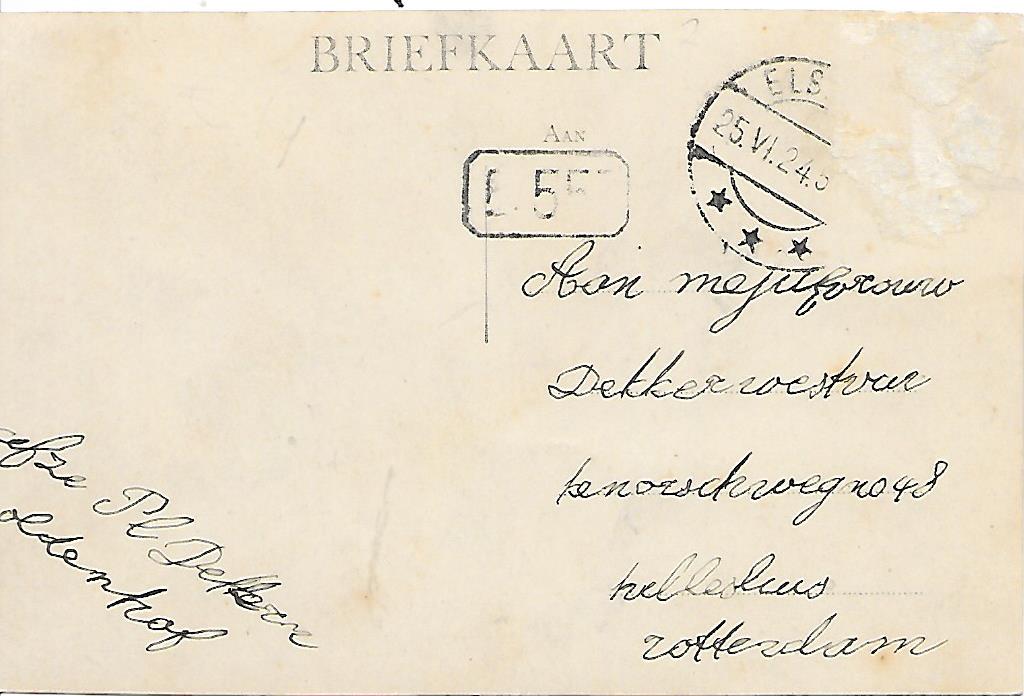 BRIEFKAART
ELS
25.VI.24.5
AAN
L. 5
Aan mejufvrouw
Dekker westvar
kenorschwegno48
hellesluus
rotterdam
Pl Dekker
oldenhof